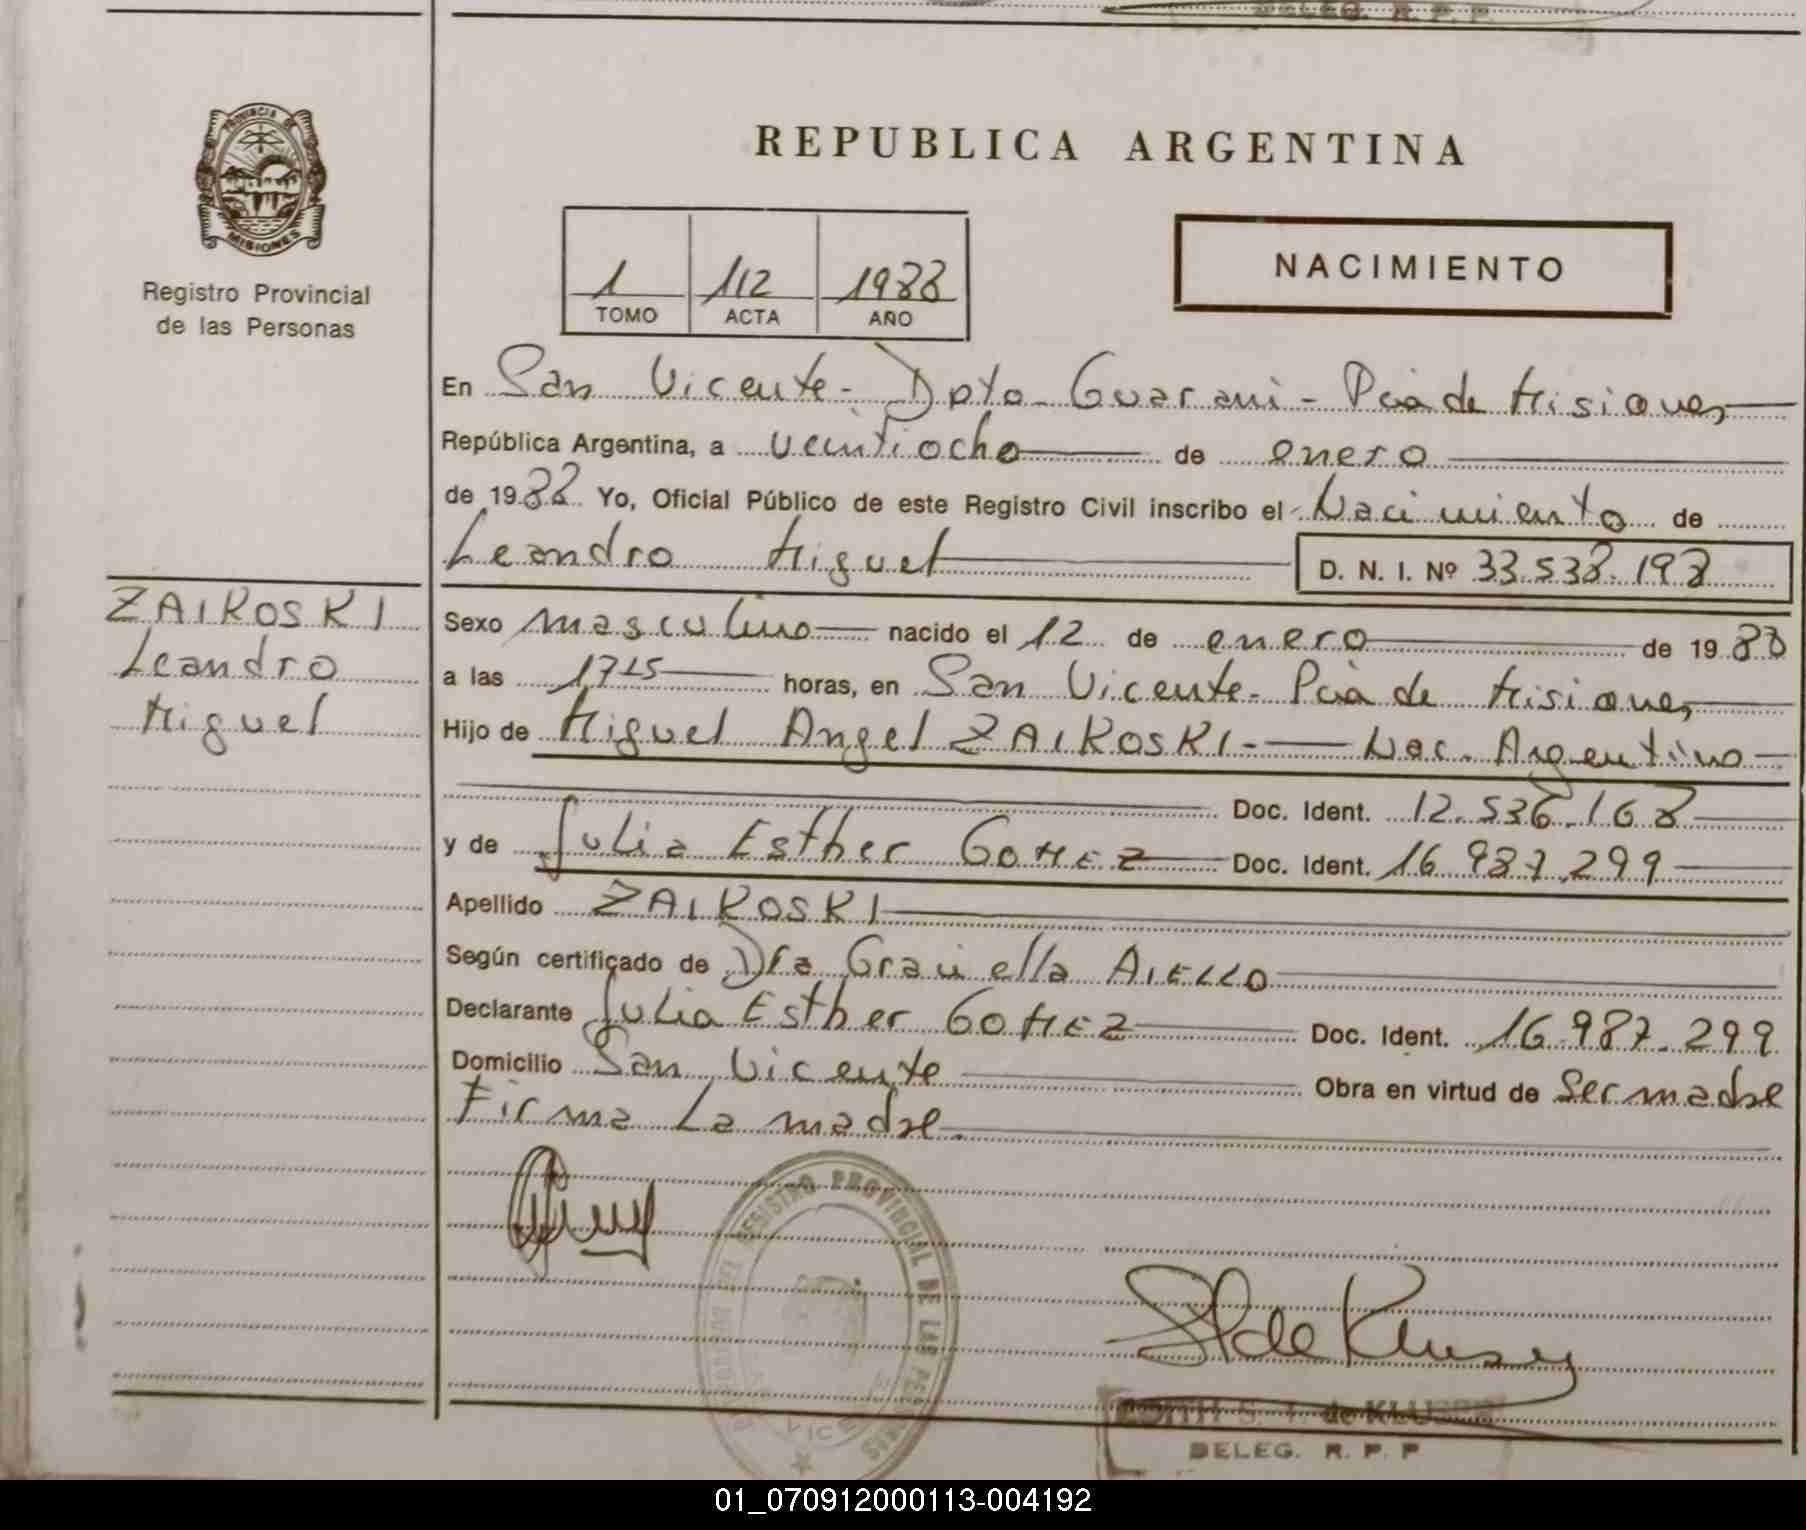 DELEG. R. P. P.
PROVINCIA DE
MISIONES
Registro Provincial
de las Personas
REPUBLICA ARGENTINA
NACIMIENTO
1 112 1988
TOMO ACTA AÑO
En San Vicente - Dpto Guarani - Pcia de Misiones
República Argentina, a veintiocho de enero
de 1988 Yo, Oficial Público de este Registro Civil inscribo el Nacimiento de
Leandro Miguel D. N. I. Nº 33.538.198
ZAIKOSKI
Leandro
Miguel
Sexo masculino nacido el 12 de enero de 1988
a las 1715 horas, en San Vicente - Pcia de Misiones
Hijo de Miguel Angel ZAIKOSKI - Nac. Argentino
Doc. Ident. 12.536.168
y de Julia Esther GOMEZ Doc. Ident. 16.987.299
Apellido ZAIKOSKI
Según certificado de Dra Graciella AIELLO
Declarante Julia Esther GOMEZ Doc. Ident. 16.987.299
Domicilio San Vicente Obra en virtud de Ser madre
Firma La madre.
REGISTRO PROVINCIAL DE LAS PERSONAS
EDITH S. T. de KLUSSY
DELEG. R. P. P
01_070912000113-004192